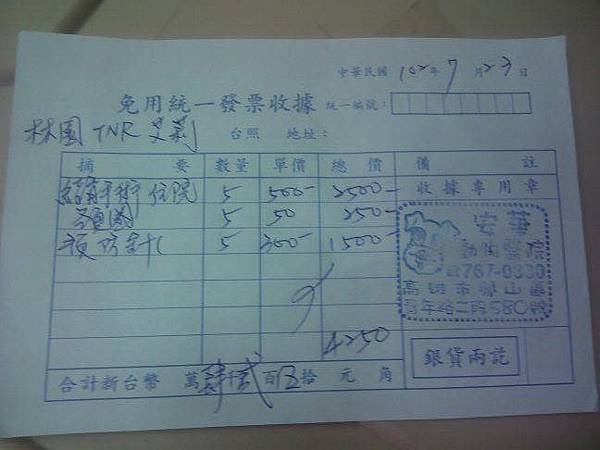 中華民國 102年 7月 23日
免用統一發票收據 統一編號:
林園 TNR 艾莉 台照 地址:
摘要 數量 單價 總價 備註
結紮手術 住院 5 500- 2500- 收據專用章
5 50 250-
預防針 5 300- 1500-
安華
動物醫院
☎767-0330
高雄市鳳山區
青年路二段580號
4250
合計新台幣 萬肆仟貳百五拾 元 角
銀貨兩訖